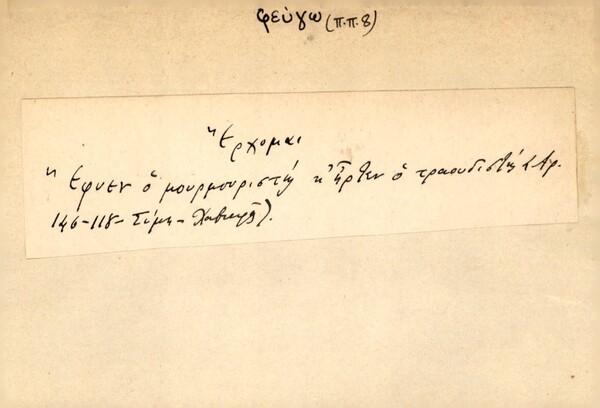 φεύγω (π.π. 8)
Ἔρχομαι
Ἔφυεν ὁ μουρμουριστὴς κ' ἦρτεν ὁ τραουδιστὴς (Ἀρ.
146-118- Σίμη-